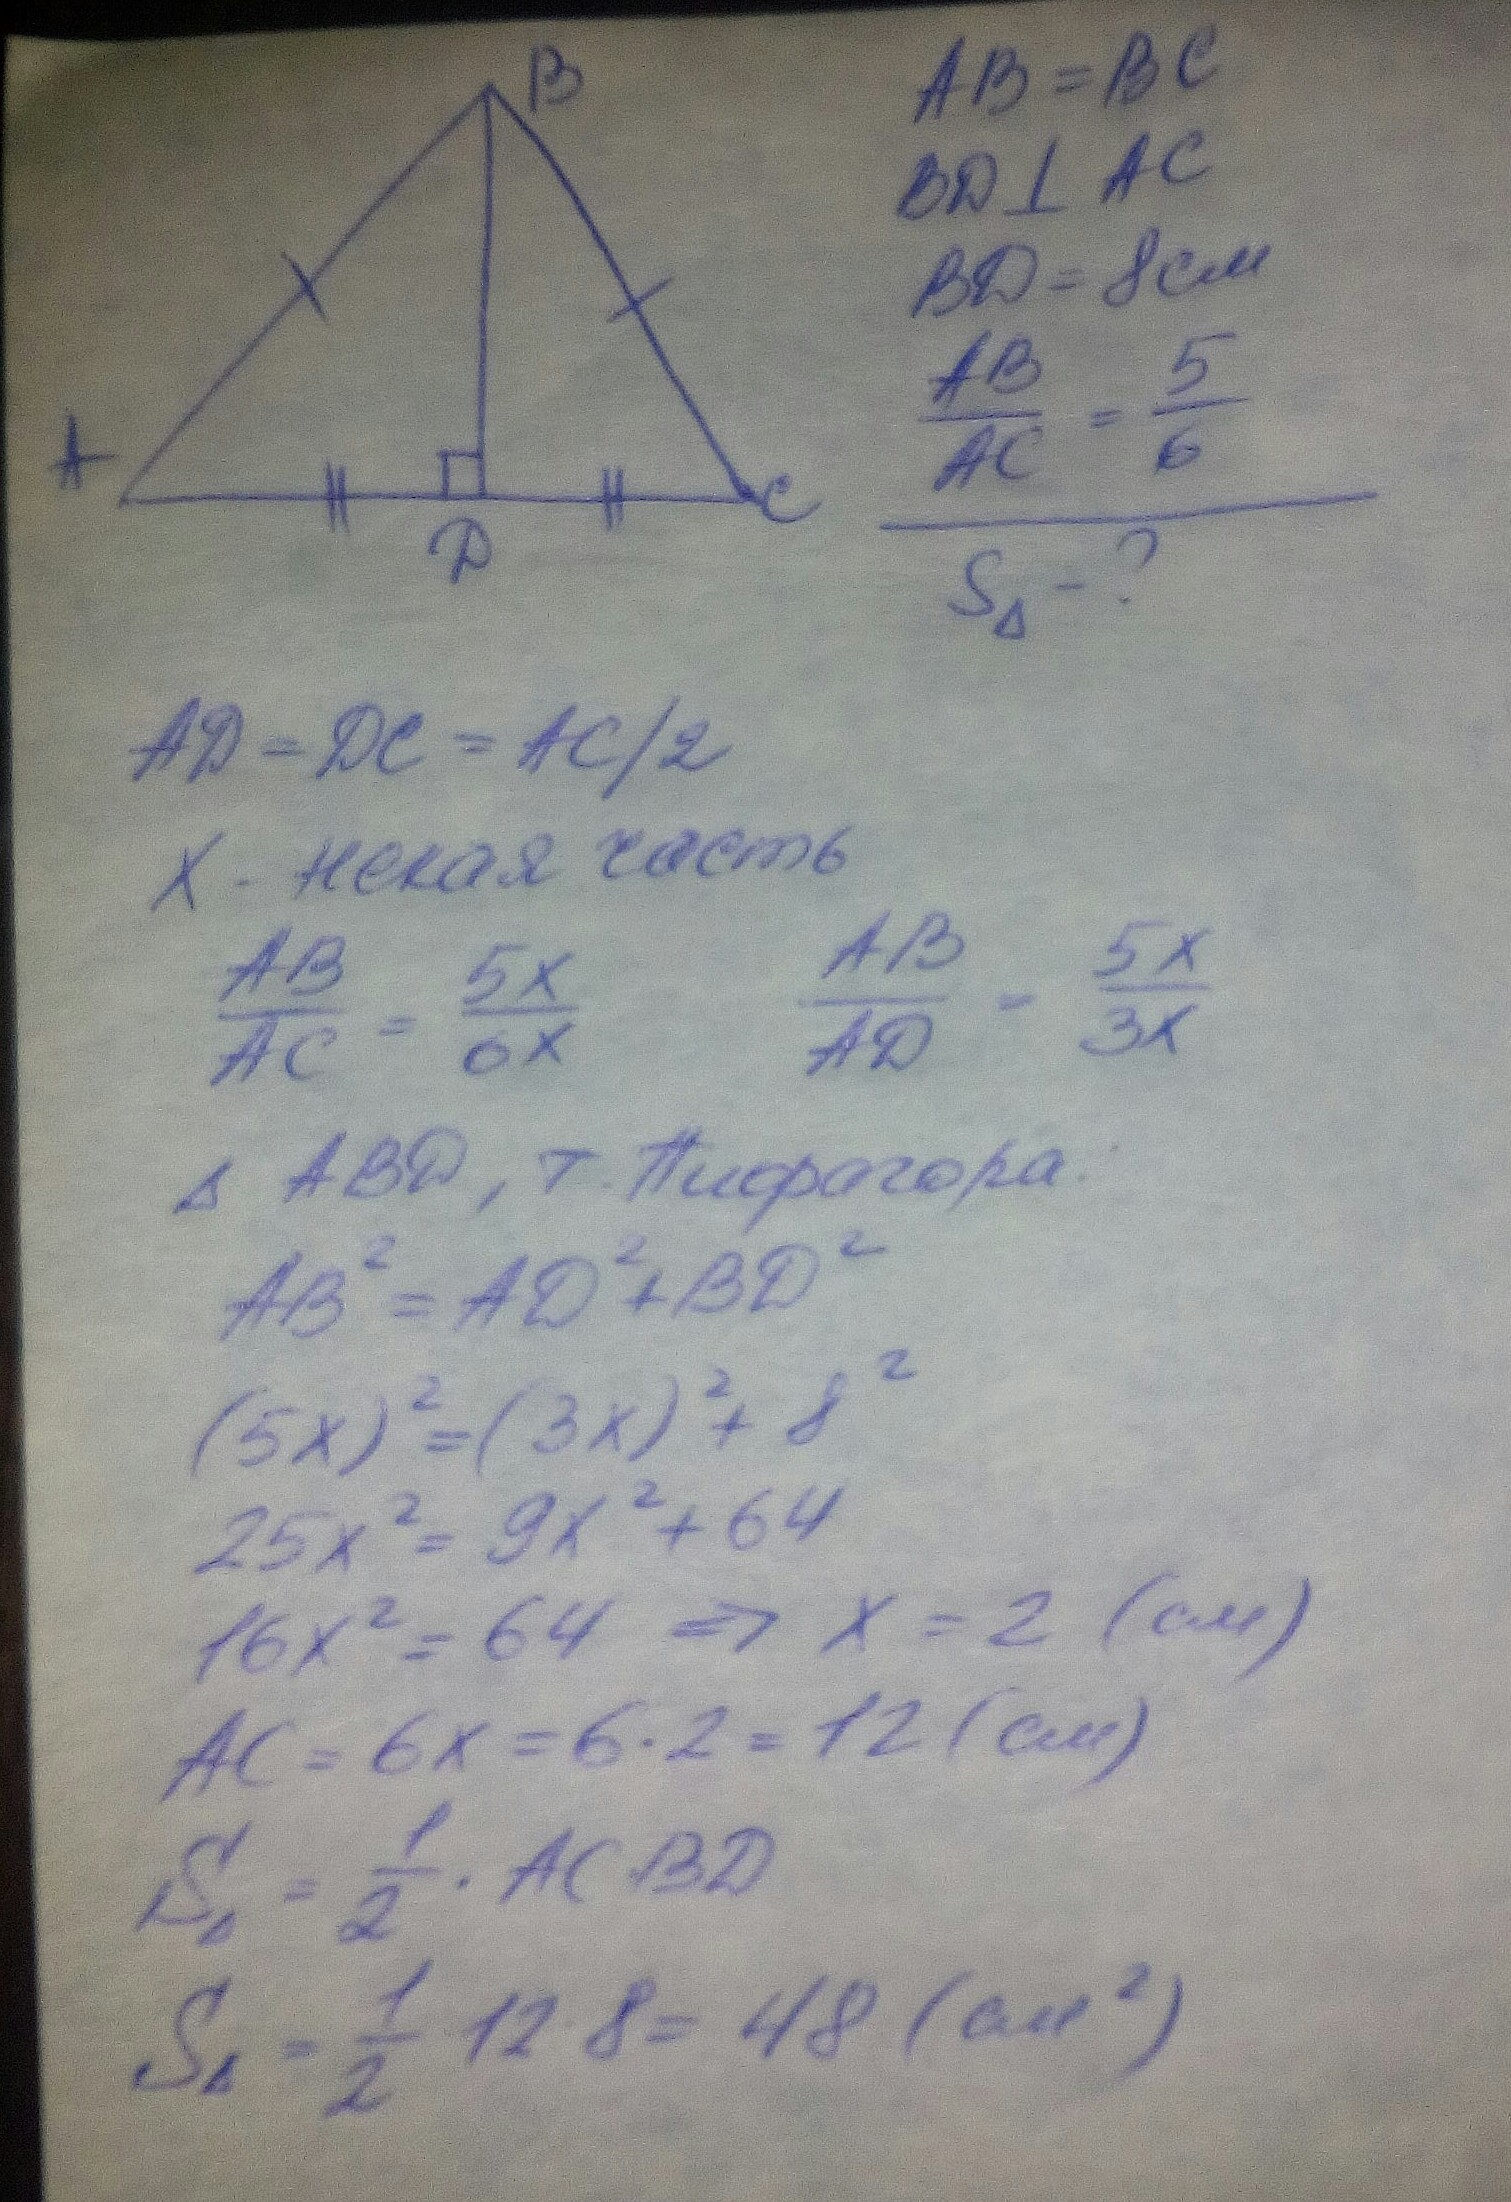 B
A
D
C
AB = BC
BD ⊥ AC
BD = 8см
AB/AC = 5/6
S△ - ?
AD = DC = AC/2
X - некая часть
AB/AC = 5x/6x    AB/AD = 5x/3x
△ ABD, т. Пифагора:
AB² = AD² + BD²
(5x)² = (3x)² + 8²
25x² = 9x² + 64
16x² = 64 => x = 2 (см)
AC = 6x = 6·2 = 12 (см)
S△ = 1/2 · AC·BD
S△ = 1/2 · 12·8 = 48 (см²)